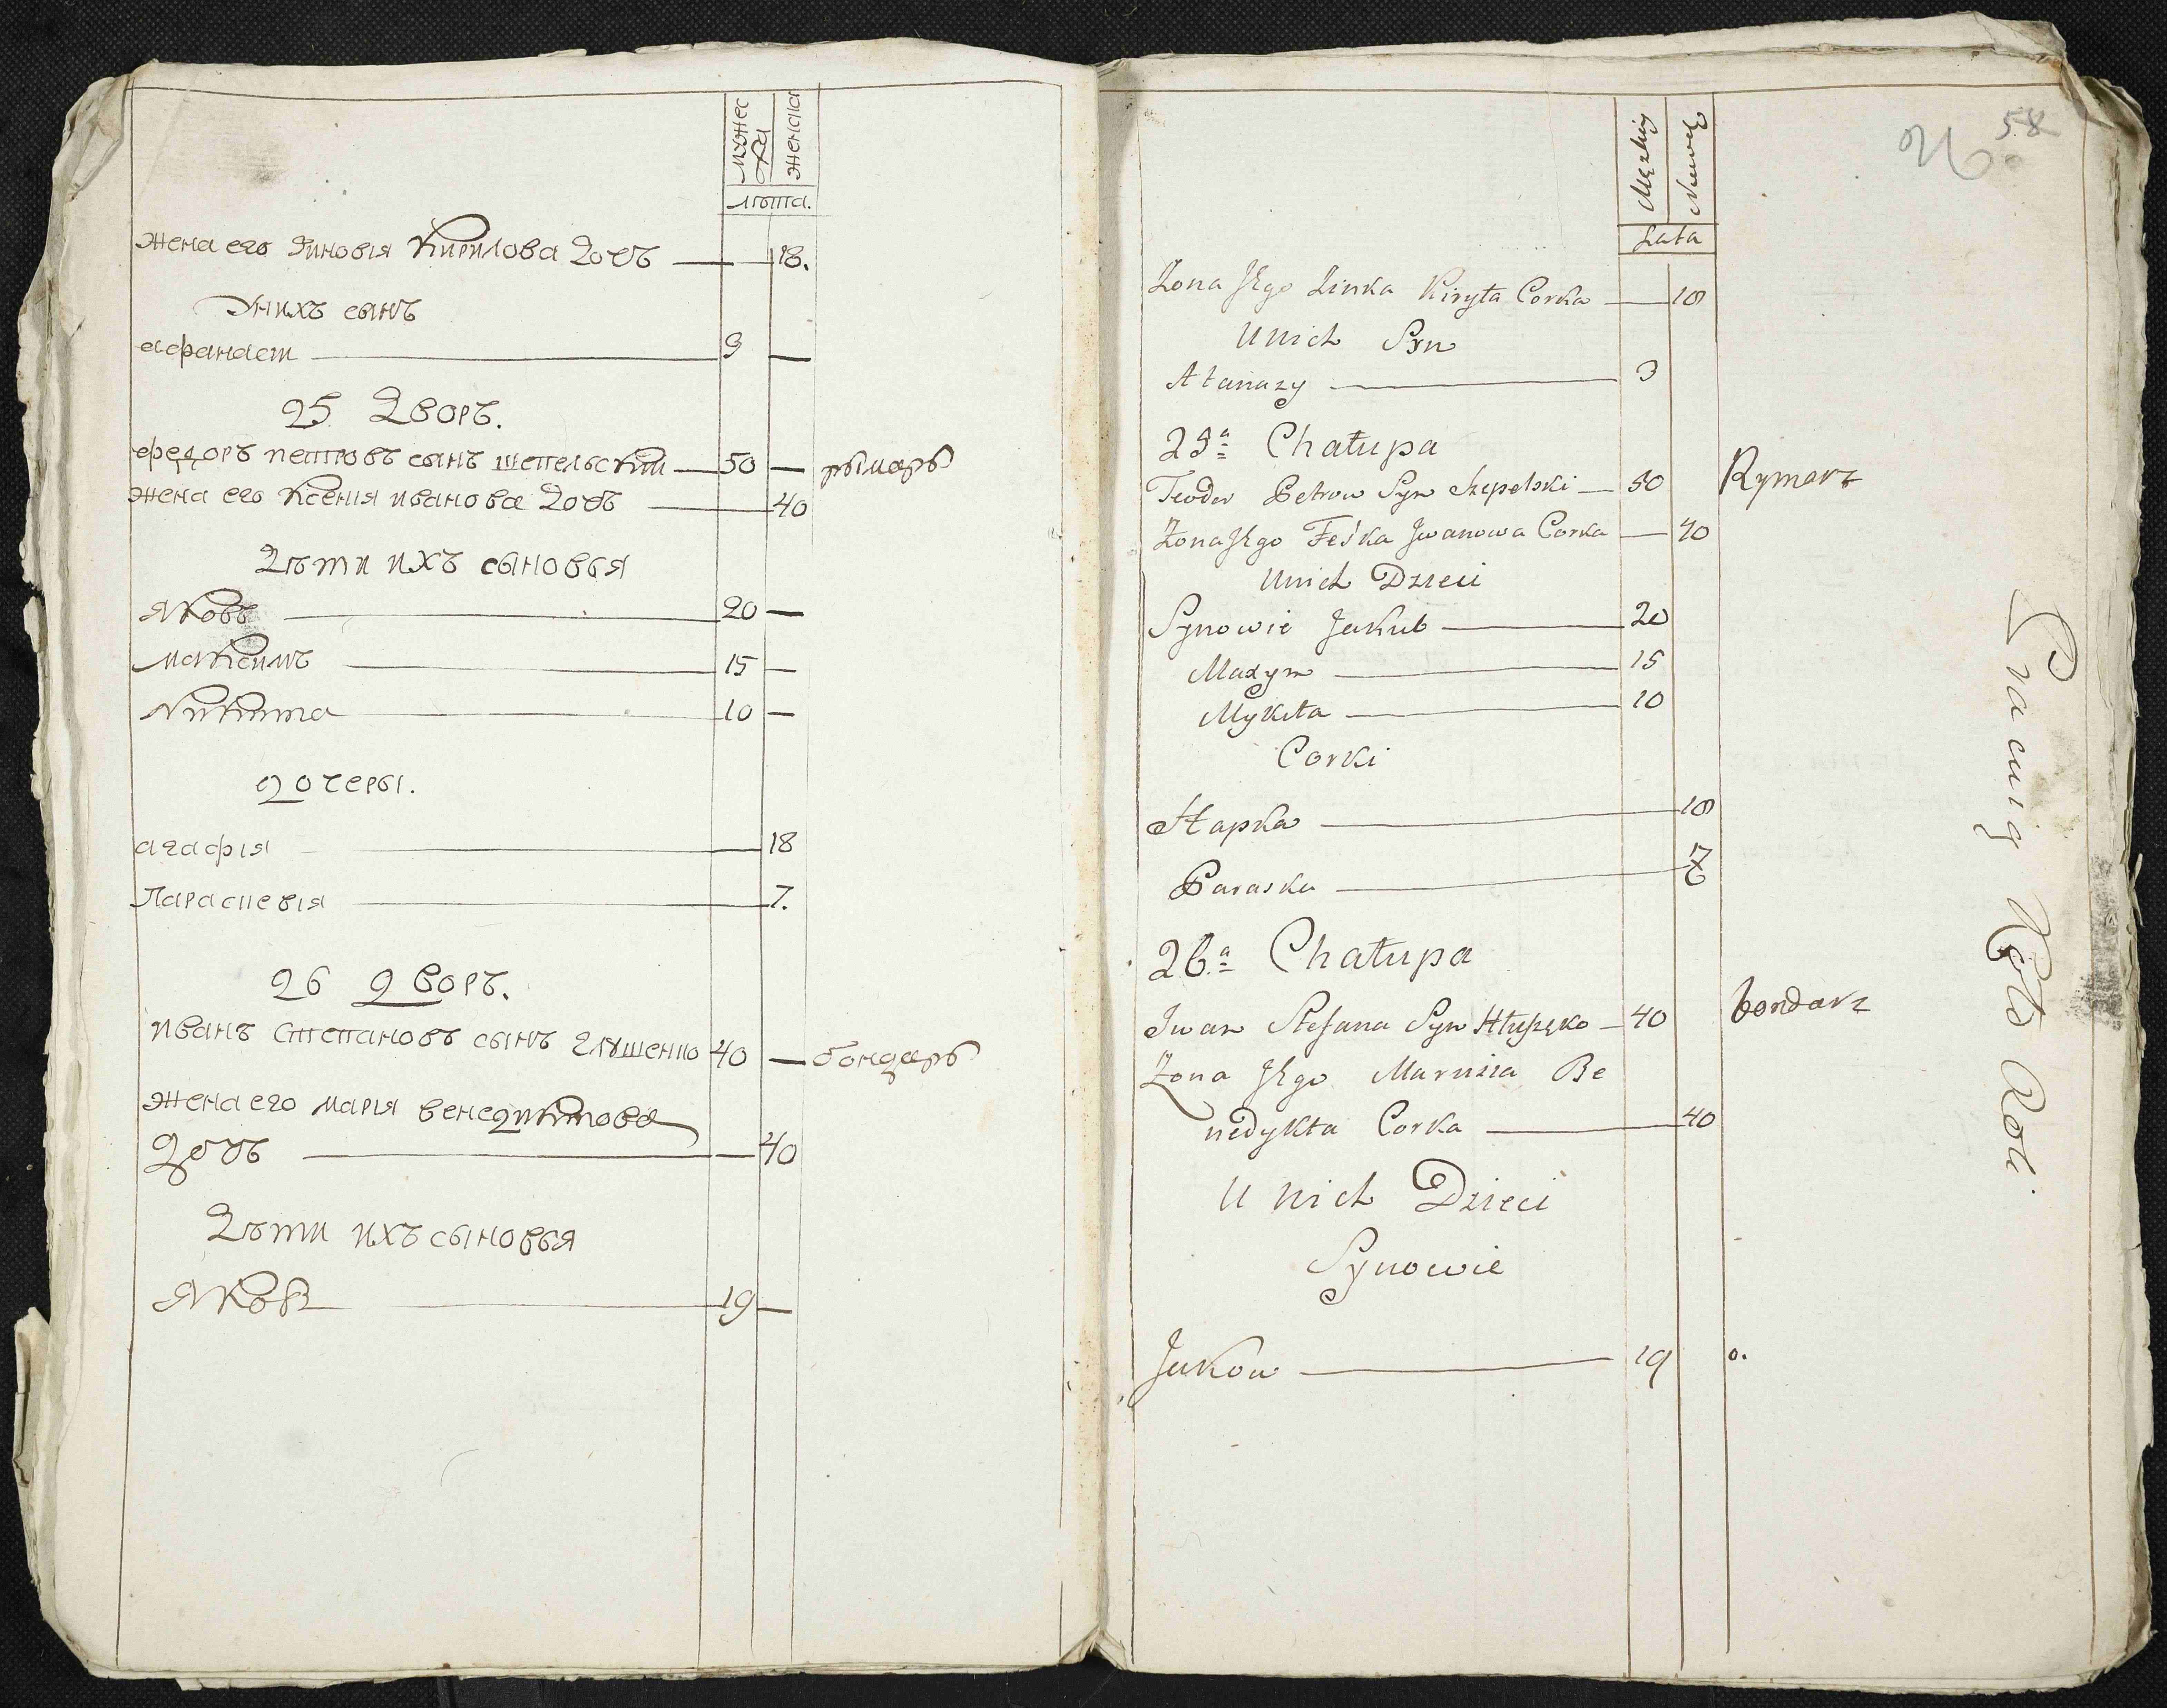 мужеска
женска
лѣта.
жена его Зиновія Кирилова дочь 18.
У нихъ сынъ
афанаси 3
25 Дворъ.
федоръ петровъ сынъ шепельский 50 рымаръ
жена его Ксенія иванова дочь 40
Дѣти ихъ сыновья
яковъ 20
максимъ 15
Никита 10
дочеры.
агафія 18
Параскевія 7.
26 дворъ.
иванъ степановъ сынъ глушенко 40 бондаръ
жена его марія венедиктова
дочь 40
Дѣти ихъ сыновья
яков 19
58
Męzkiey
Niewie
Lata
Zona Jego Zinka Kiryła Corka 18
U nich Syn
Atanazy 3
25a Chałupa
Teodor Petrow Syn Szepelski 50 Rymarz
Zona Jego Feśka Jwanowa Corka 40
U nich Dzieci
Synowie Jakub 20
Maxym 15
Mykita 10
Corki
Hapka 18
Paraska 7
26a Chałupa
Iwan Stefana Syn Hłuszko 40 bondarz
Zona Jego Marusia Be
nedykta Corka 40
U nich Dzieci
Synowie
Jakow 19 0.